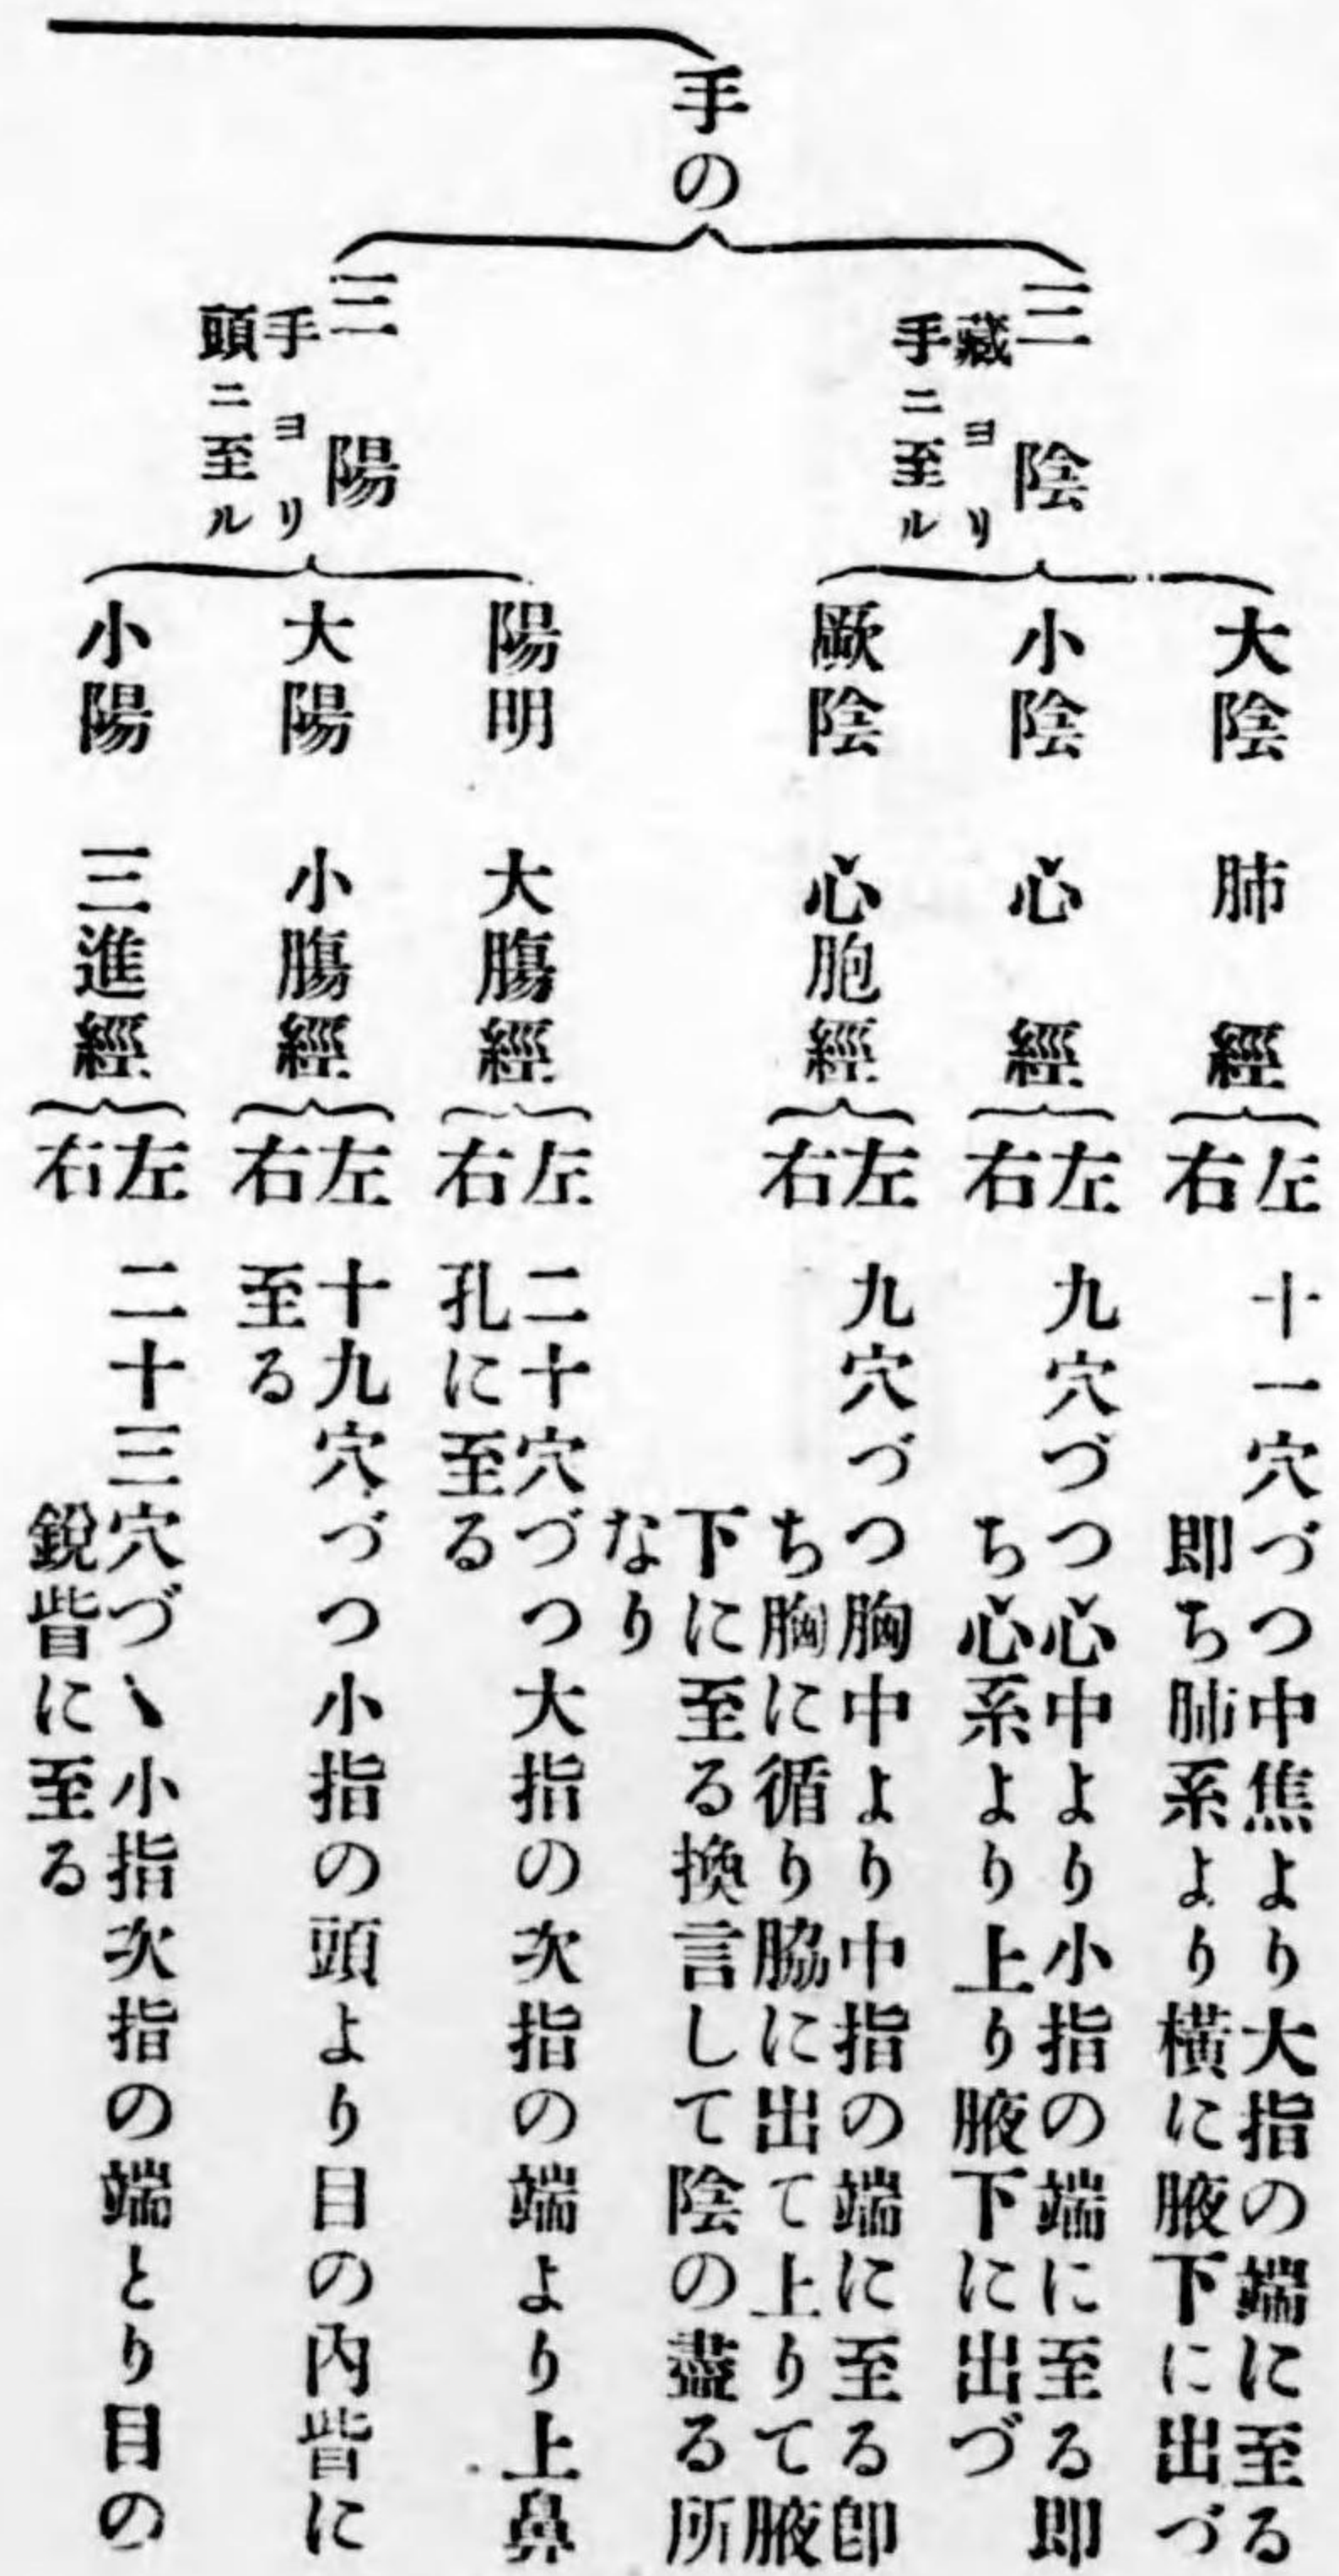 手の
三陰
藏ヨリ
手ニ至ル
大陰 肺經
左
右
十一穴づつ中焦より大指の端に至る
即ち肺系より横に腋下に出づ
小陰 心經
左
右
九穴づつ心中より小指の端に至る即
ち心系より上り腋下に出づ
厥陰 心胞經
左
右
九穴づつ胸中より中指の端に至る卽
ち胸に循り脇に出て上りて腋
下に至る換言して陰の盡る所
なり
三陽
手ヨリ
頭ニ至ル
陽明 大膓經
左
右
二十穴づつ大指の次指の端より上鼻
孔に至る
大陽 小膓經
左
右
十九穴づつ小指の頭より目の內眥に
至る
小陽 三進經
左
右
二十三穴づゝ小指次指の端とり目の
銳眥に至る